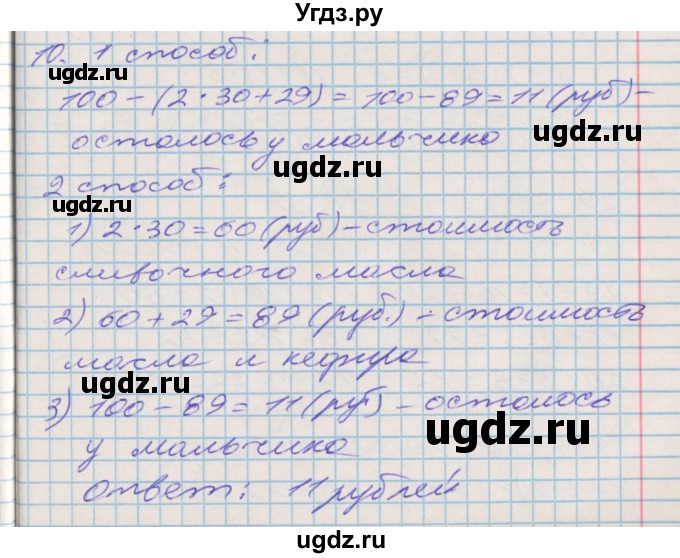 Угдз.ру
10. 1 способ:
ugdz.ru ugdz.ru
100-(2·30+29)=100-89=11(руб)-
осталось у мальчика
ugdz.ru ugdz.ru
2 способ:
1) 2·30=60(руб)-стоимость
ugdz.ru
сливочного масла
2) 60+29=89(руб.)-стоимость
ugdz.ru
масла и кефира
ugdz.ru
3) 100-89=11(руб)-осталось
ugdz.ru
у мальчика
ugdz.ru
ответ: 11 рублей
ugdz.ru ugdz.ru
Угдз.ру